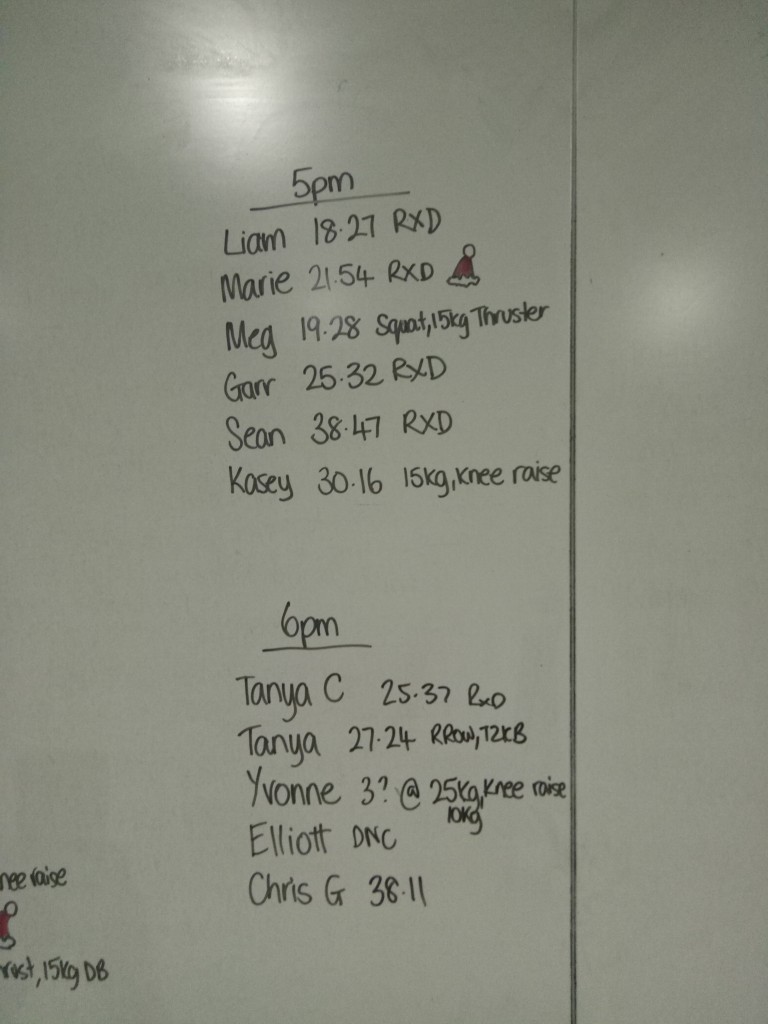 5pm
Liam 18.27 RXD
Marie 21.54 RXD
Meg 19.28 Squat, 15kg Thruster
Garr 25.32 RXD
Sean 38.47 RXD
Kasey 30.16 15kg, Knee raise
6pm
Tanya C 25.37 RXD
Tanya 27.24 RRow, T2KB
Yvonne 3? @ 25kg, Knee raise
10kg
Elliott DNC
Chris G 38.11
nee raise
15kg DB